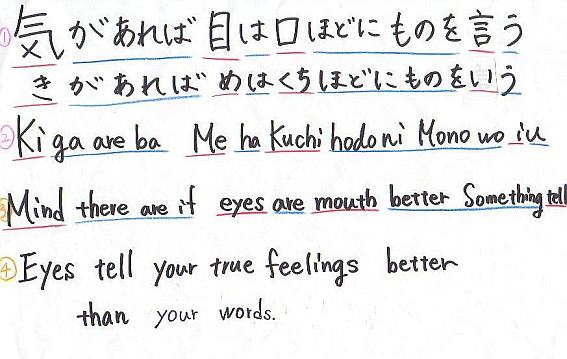 ① 気があれば 目は口ほどにものを言う
きがあれば めはくちほどにものをいう
② Ki ga are ba Me ha Kuchi hodo ni Mono wo iu
③ Mind there are if eyes are mouth better Something tell
④ Eyes tell your true feelings better
than your words.